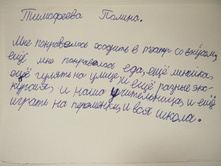 Тимофеева Полина.
Мне понравилось ходить в театр со втором,
ещё, мне понравилось еда, ещё
ещё гулять на улице и ещё разные экс-
курсии, и наша учительница, и ещё
играть на променам, и вся школа.